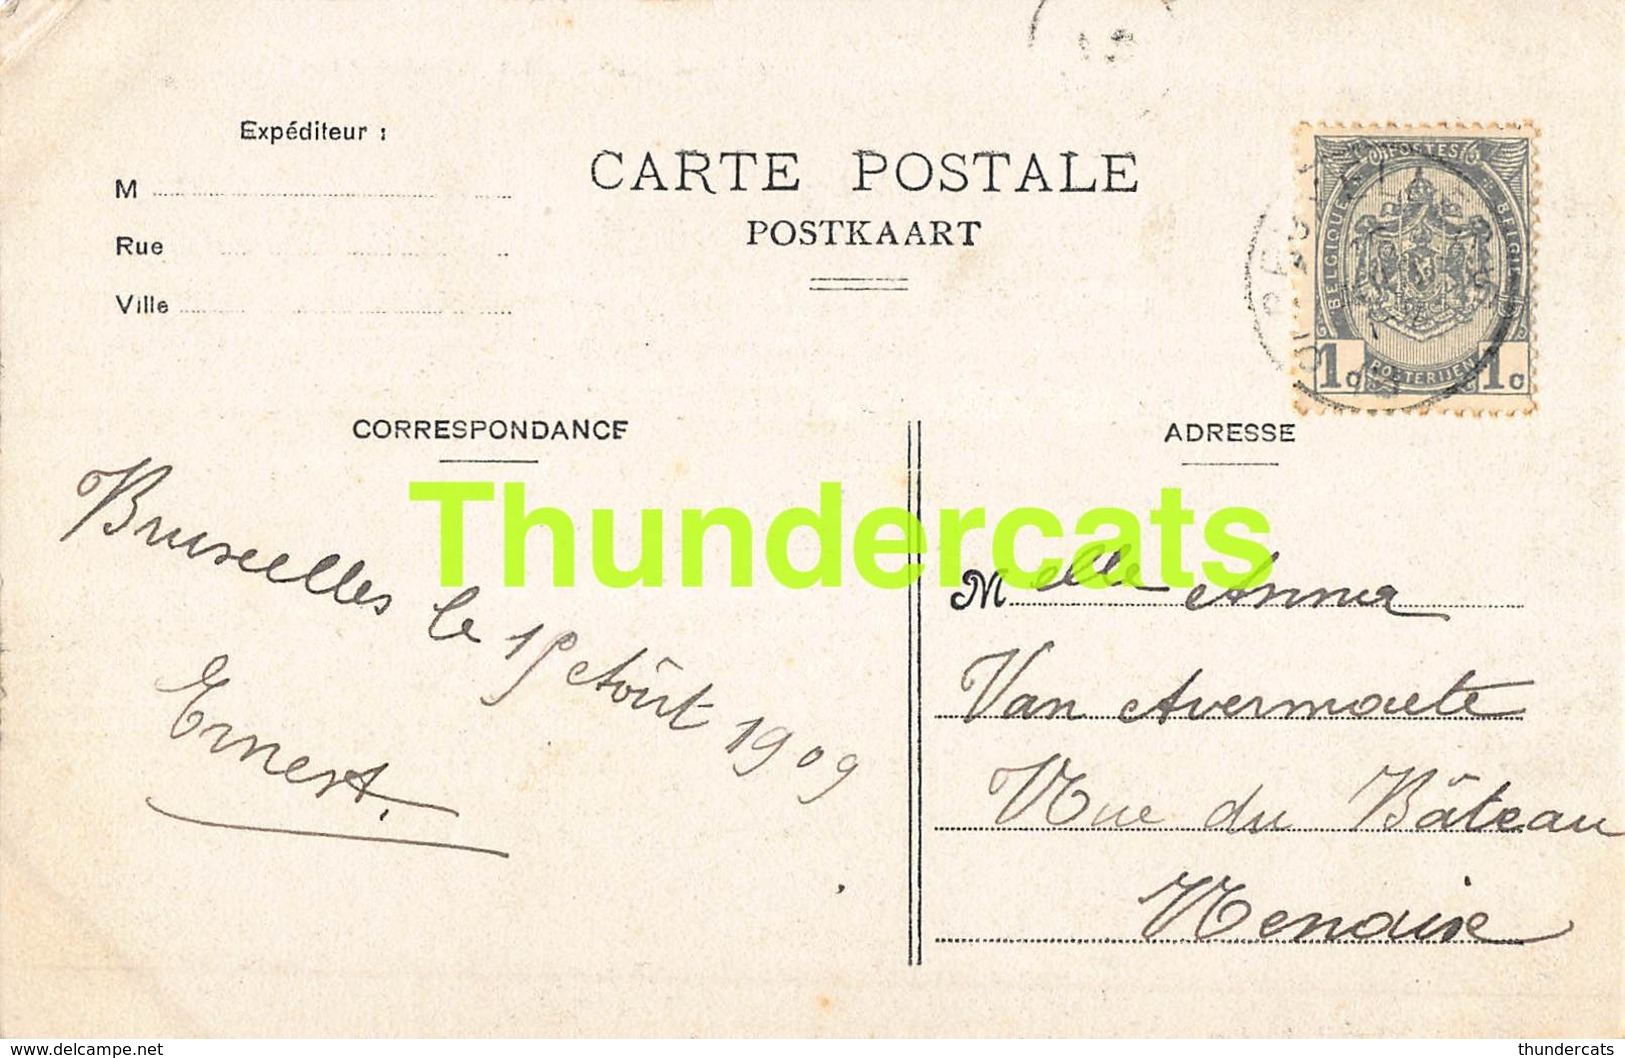 Expéditeur :
M
Rue
Ville
CARTE POSTALE
POSTKAART
POSTES
BELGIQUE
BELGIE
POSTERIJEN
1c 1c
CORRESPONDANCE
Bruxelles le 15 Août 1909
Ernest.
ADRESSE
Melle Anna
Van Avermaete
Rue du Bâteau
Renaix
Thundercats
www.delcampe.net
thundercats